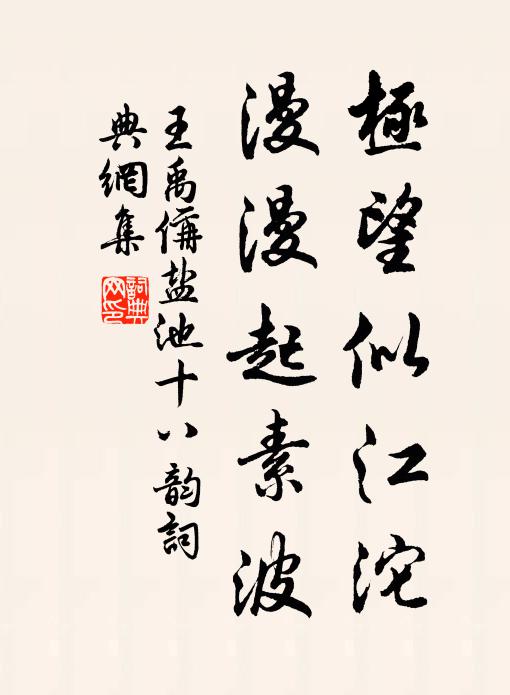 極望似江沱
漫漫起素波
王禹偁盐池十八韵詞
典網集
詞典
网印